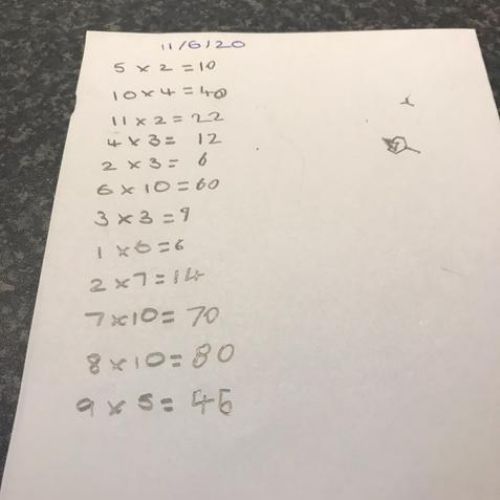 11/6/20
5 x 2 = 10
10 x 4 = 40
11 x 2 = 22
4 x 3 = 12
2 x 3 = 6
6 x 10 = 60
3 x 3 = 9
1 x 6 = 6
2 x 7 = 14
7 x 10 = 70
8 x 10 = 80
9 x 5 = 45